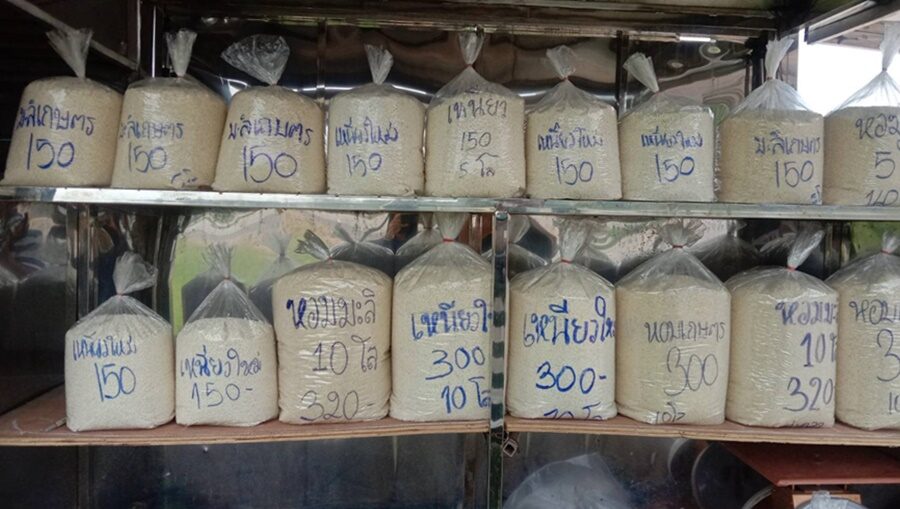 มะลิเกษตร
150
มะลิเกษตร
150
5โล
มะลิเกษตร
150
เหนียวใหม่
150
เหนียว
150
5 โล
เหนียวใหม่
150
เหนียวใหม่
150
มะลิเกษตร
150
หอม
5
140
เหนียวใหม่
150
เหนียวใหม่
150-
หอมมะลิ
10 โล
320-
เหนียวใ
300
10 โล
เหนียวให
300-
หอมเกษตร
300
10
หอมมะ
10
320
หอม
3
10